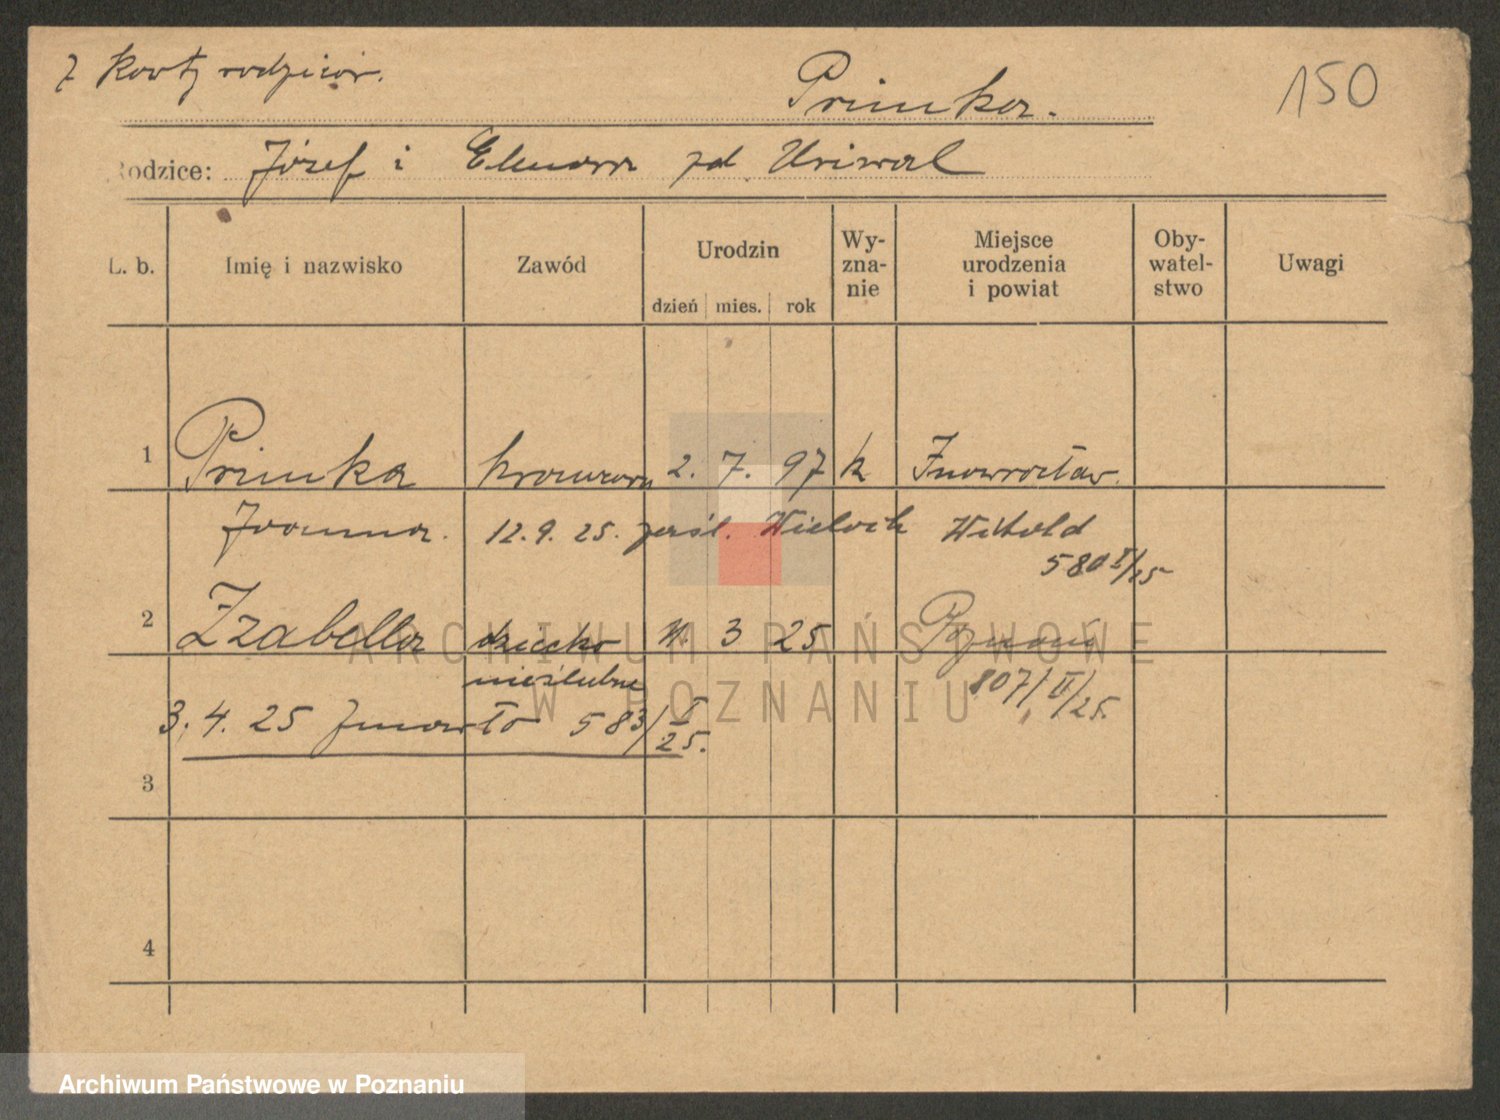 z karty rodziców.
Primka.
150
Rodzice: Józef i Eleonora zd. Uriwal
L. b.
Imię i nazwisko
Zawód
Urodzin
dzień mies. rok
Wy-
zna-
nie
Miejsce
urodzenia
i powiat
Oby-
watel-
stwo
Uwagi
1 Primka krawcowa 2. 7. 97 k Inowrocław.
Joanna. 12.9.25. zaśl. Wieloch Witold
580 I/25
2 Izabella dziecko 11. 3 25 Poznań
nieślubne 807/II/25.
3. 4. 25 zmarło 583/I
25.
3
4
ARCHIWUM PAŃSTWOWE
W POZNANIU
Archiwum Państwowe w Poznaniu